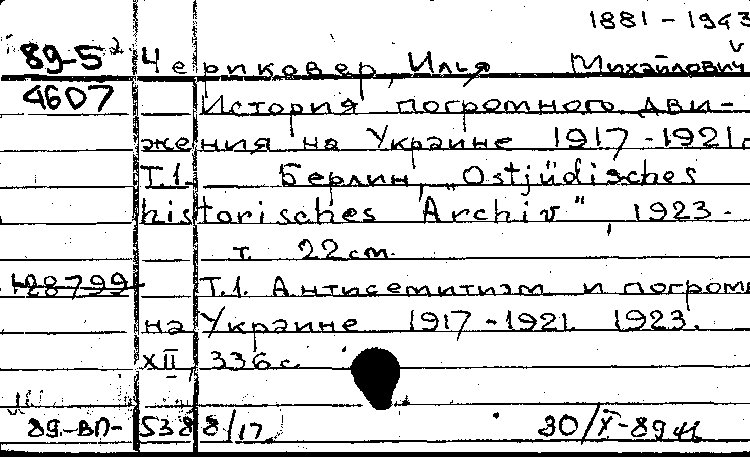 1881 - 1943
89-5 Чериковер, Илья Михайлович
4607 История погромного дви-
жения на Украине 1917-1921г
Т.1. Берлин, „Ostjüdisches
historisches Archiv", 1923-
т. 22 cm.
428799 Т.1. Антисемитизм и погром
на Украине 1917-1921. 1923.
XII, 336 с.
89-ВП- 5388/17 30/X-89